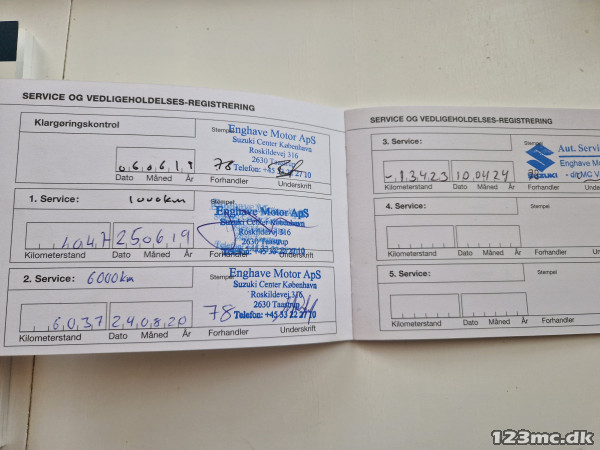 SERVICE OG VEDLIGEHOLDELSES-REGISTRERING
Klargøringskontrol
Stempel
Enghave Motor ApS
Suzuki Center København
Roskildevej 316
2630 Taastrup
Telefon: +45 33 22 27 10
06 06 19
78
Dato Måned År Forhandler Underskrift
1. Service: 1000km
Stempel
Enghave Motor ApS
Suzuki Center København
Roskildevej 316
2630 Taastrup
Telefon: +45 33 22 27 10
1047 25 06 19
Kilometerstand Dato Måned År Forhandler Underskrift
2. Service: 6000km
Enghave Motor ApS
Suzuki Center København
Roskildevej 316
2630 Taastrup
Telefon: +45 33 22 27 10
6037 24 08 20
78
Kilometerstand Dato Måned År Forhandler Underskrift
SERVICE OG VEDLIGEHOLDELSES-REGISTRERING
3. Service:
Stempel
Aut. Servi
Enghave Mo
SUZUKI - din MC V
13423 10 04 24
Kilometerstand Dato Måned År Forhandler
4. Service:
Stempel
Kilometerstand Dato Måned År Forhandler
5. Service:
Stempel
Kilometerstand Dato Måned År Forhandler
123mc.dk